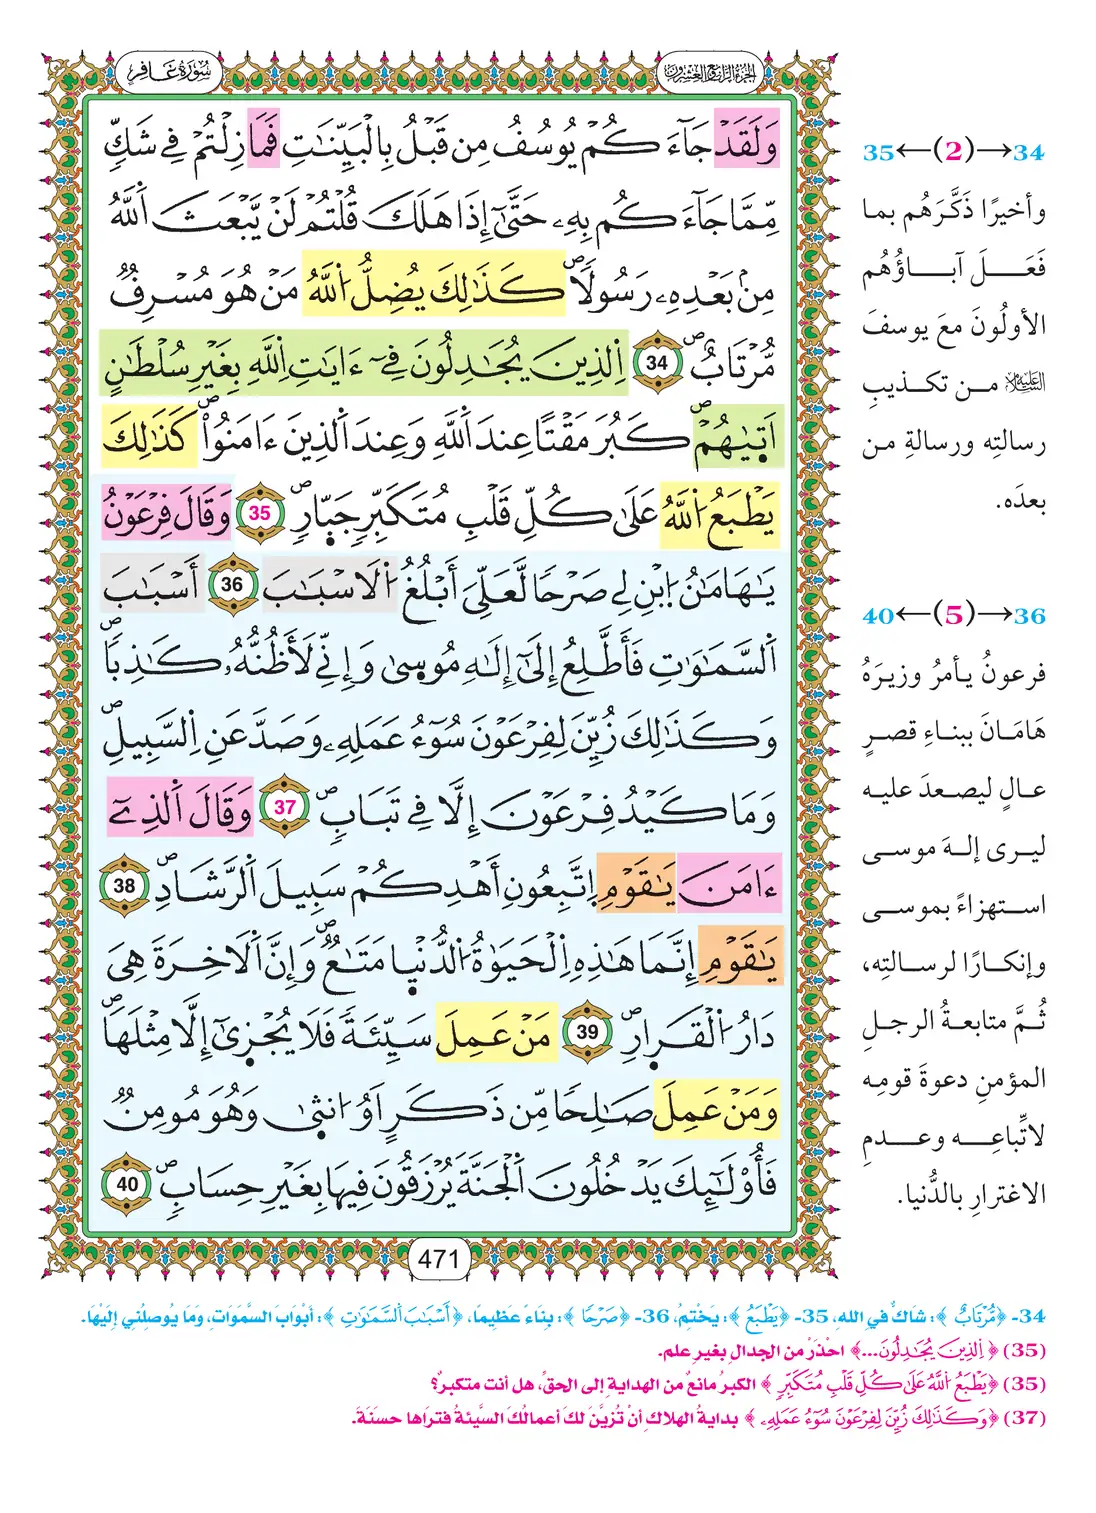 الجزء الرابع والعشرون
سُورَةُ غَافِرٍ
وَلَقَدْ جَآءَ كُمْ يُوسُفُ مِن قَبْلُ بِالْبَيِّنَٰتِ فَمَا زِلْتُمْ فِي شَكٍّ
مِّمَّا جَآءَ كُم بِهِۦ حَتَّىٰٓ إِذَا هَلَكَ قُلْتُمْ لَنْ يَّبْعَثَ اَللَّهُ
مِنۢ بَعْدِهِۦ رَسُولًاۖ كَذَٰلِكَ يُضِلُّ اُللَّهُ مَنْ هُوَ مُسْرِفٌ
مُّرْتَابٌۖ 34 اِلذِينَ يُجَٰدِلُونَ فِےٓ ءَايَٰتِ اِللَّهِ بِغَيْرِ سُلْطَٰنٍ
اَتَىٰهُمْۖ كَبُرَ مَقْتًا عِندَ اَللَّهِ وَعِندَ اَلذِينَ ءَامَنُواْۖ كَذَٰلِكَ
يَطْبَعُ اُللَّهُ عَلَىٰ كُلِّ قَلْبِ مُتَكَبِّرٍ جَبّ۪ارٍۖ 35 وَقَالَ فِرْعَوْنُ
يَٰهَامَٰنُ اُبْنِ لِي صَرْحًا لَّعَلِّيَ أَبْلُغُ اُلَاسْبَٰبَ 36 أَسْبَٰبَ
اَلسَّمَٰوَٰتِ فَأَطَّلِعُ إِلَىٰٓ إِلَٰهِ مُوسىٰ وَإِنِّي لَأَظُنُّهُۥ كَٰذِبًاۖ
وَكَذَٰلِكَ زُيِّنَ لِفِرْعَوْنَ سُوٓءُ عَمَلِهِۦ وَصَدَّ عَنِ اِلسَّبِيلِۖ
وَمَا كَيْدُ فِرْعَوْنَ إِلَّا فِي تَبَابٍۖ 37 وَقَالَ اَلذِےٓ
ءَامَنَ يَٰقَوْمِ اِتَّبِعُونِ أَهْدِكُمْ سَبِيلَ اَلرَّشَادِۖ 38
يَٰقَوْمِ إِنَّمَا هَٰذِهِ اِلْحَيَوٰةُ اُلدُّنْي۪ا مَتَٰعٌۖ وَإِنَّ اَلَاخِرَةَ هِيَ
دَارُ اُلْقَرارِۖ 39 مَنْ عَمِلَ سَيِّئَةً فَلَا يُجْزىٰٓ إِلَّا مِثْلَهَاۖ
وَمَنْ عَمِلَ صَٰلِحًا مِّن ذَكَرٍ اَوُ انثىٰ وَهُوَ مُومِنٌ
فَأُوْلَٰٓئِكَ يَدْخُلُونَ اَلْجَنَّةَ يُرْزَقُونَ فِيهَا بِغَيْرِ حِسَابٍۖ 40
471
34→(2)←35
وأخيرًا ذَكَّرَهُم بما
فَعَلَ آباؤُهُم
الأولُونَ معَ يوسفَ
عليه السلام من تكذيبِ
رسالتِه ورسالةِ من
بعدَه.
36→(5)←40
فرعونُ يأمرُ وزيرَهُ
هَامَانَ ببناءِ قصرٍ
عالٍ ليصعدَ عليه
ليرى إلهَ موسى
استهزاءً بموسى
وإنكارًا لرسالتِه،
ثُمَّ متابعةُ الرجلِ
المؤمنِ دعوةَ قومِه
لاتِّباعِه وعدمِ
الاغترارِ بالدُّنيا.
34- ﴿مُّرْتَابٌ﴾: شاكٌّ في اللهِ، 35- ﴿يَطْبَعُ﴾: يَخْتِمُ، 36- ﴿صَرْحًا﴾: بِنَاءً عَظِيمًا، ﴿أَسْبَٰبَ اَلسَّمَٰوَٰتِ﴾: أبْوَابَ السَّمَوَاتِ، وَمَا يُوصِلُنِي إِلَيْهَا.
(35) ﴿اِلذِينَ يُجَٰدِلُونَ...﴾ احْذَرْ من الجدالِ بغيرِ علمٍ.
(35) ﴿يَطْبَعُ اُللَّهُ عَلَىٰ كُلِّ قَلْبِ مُتَكَبِّرٍ﴾ الكبرُ مانعٌ من الهدايةِ إلى الحقِّ، هل أنت متكبرٌ؟
(37) ﴿وَكَذَٰلِكَ زُيِّنَ لِفِرْعَوْنَ سُوٓءُ عَمَلِهِۦ﴾ بدايةُ الهلاكِ أنْ تُزيَّنَ لكَ أعمالُكَ السَّيئةُ فتراها حسَنَةً.